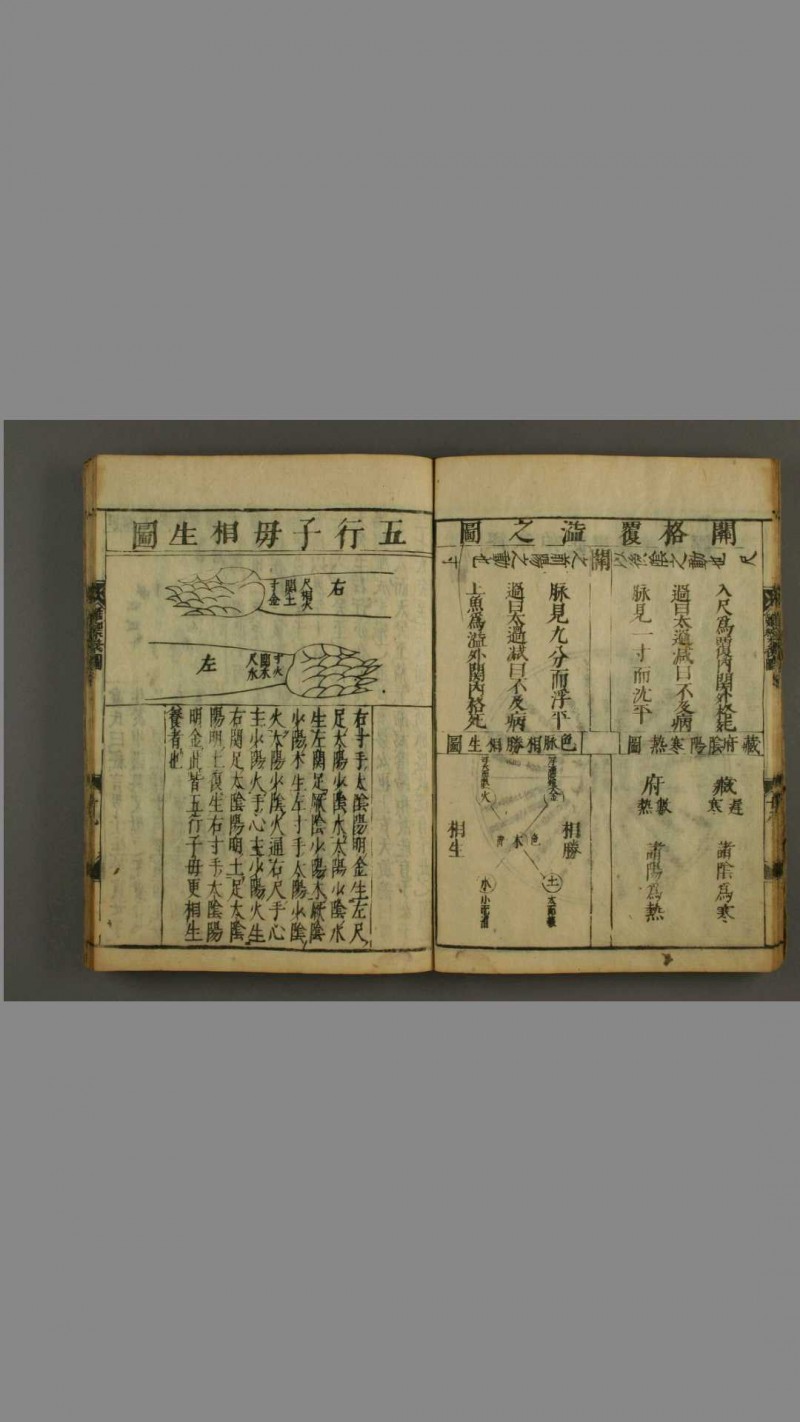 關格覆溢之圖
入尺爲覆內關外格死
過曰太過減曰不及病
脉見一寸而沈平
脉見九分而浮平
過曰太過減曰不及病
上魚爲溢外關內格死
藏府陰陽寒熱圖
藏
遲寒
諸陰爲寒
府
數熱
諸陽爲熱
色脉相勝相生圖
相勝
相生
色
木
青
土
火
水
五行子母相生圖
右
尺相火
關土
寸金
左
寸火
關木
尺水
右寸手太陰陽明金生左尺
足太陽少陰水太陽少陰水
生左關足厥陰少陽木厥陰
少陽木生左寸手太陽少陰
火太陽少陰火通右尺手心
主少陽火手心主少陽火生
右關足太陰陽明土足太陰
陽明土復生右寸手太陰陽
明金此皆五行子母更相生
養者也